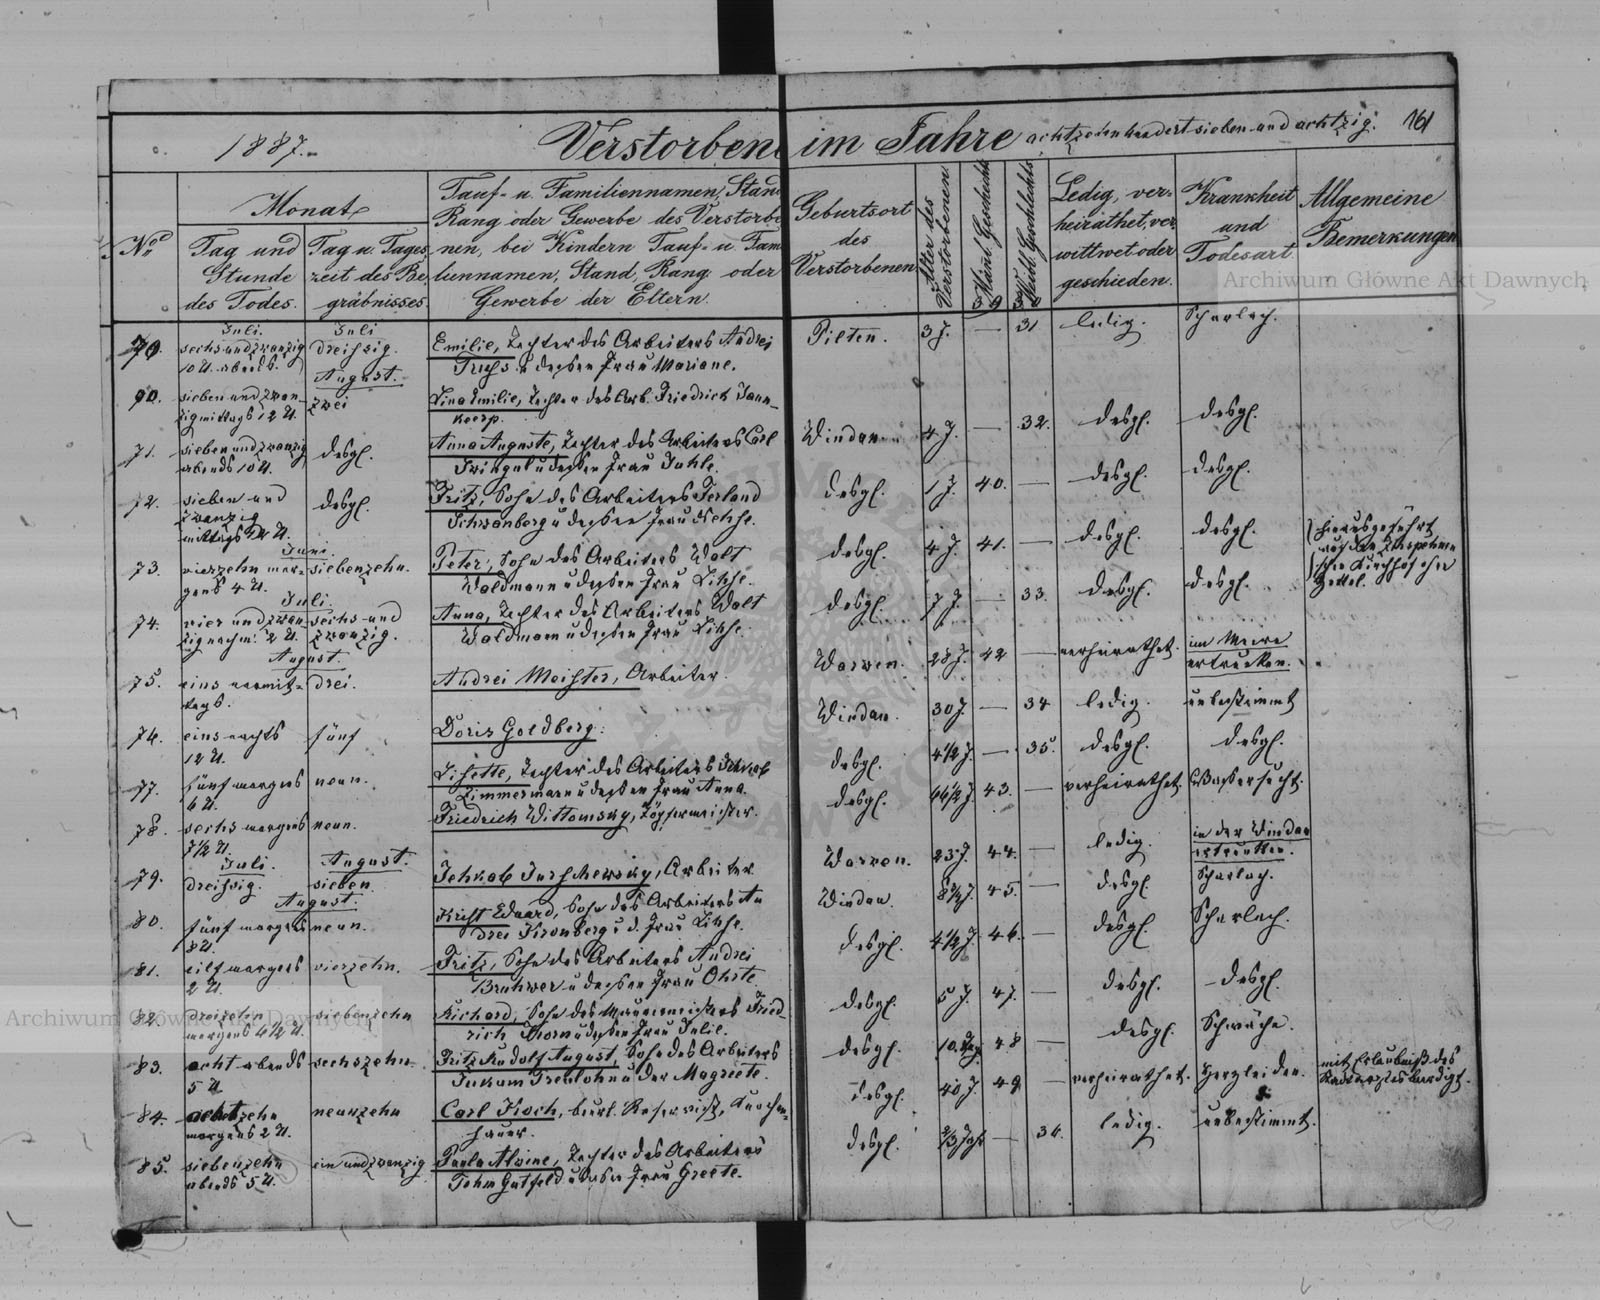 1887.
Verstorbene im Jahre achtzehnhundert sieben und achtzig. 161
No
Monat
Tag und
Stunde
des Todes.
Tag u. Tages
zeit des Be
gräbnisses.
Tauf- u. Familiennamen, Stand
Rang oder Gewerbe des Verstorbe
nen, bei Kindern Tauf- u. Fami
liennamen, Stand, Rang oder
Gewerbe der Eltern.
Geburtsort
des
Verstorbenen
Alter des
Verstorbenen
Männl. Geschlechts
Weibl. Geschlechts
Ledig, ver-
heirathet, ver
wittwet oder
geschieden.
Krankheit
und
Todesart.
Allgemeine
Bemerkungen
Archiwum Główne Akt Dawnych
Juli. Juli
70. sechs und zwanzig dreißig. Emilie, Tochter des Arbeiters Andrei Pilten. 3 J. — 31 ledig. Scharlach.
10 U. abends. u dessen Frau Mariane.
August.
70. sieben und zwan- zwei Lina Emilie, Tochter des Arb. Friedrich Jann-
zig mittags 12 U. Windau 4 J. — 32. desgl. desgl.
71. sieben und zwanzig desgl. Anna Auguste, Tochter des Arbeiters Carl
abends 10 U. u dessen Frau Juhle. desgl. 1 J. 40. — desgl. desgl.
72. sieben und desgl. Fritz, Sohn des Arbeiters
zwanzig Schwanberg u dessen Frau
mittags 12 U. desgl. 4 J. 41. — desgl. desgl.
Juni.
73. vierzehn mor- siebenzehn. Peter, Sohn des Arbeiters Walt
gens 4 U. Waldmann u dessen Frau Lihse. desgl. 7 J. — 33. desgl. desgl. Zettel.
Juli.
74. vier und zwan sechs und Anna, Tochter des Arbeiters Walt
zig nachm. 2 U. zwanzig. Waldmann u dessen Frau Lihse. Warwen. 28 J. 42 — verheirathet. im Meere
ertrunken.
August.
75. eins vormit- drei. Andrei Meister, Arbeiter.
tags. Windau. 30 J. — 34 ledig. unbestimmt
76. eins nachts fünf Doris Goldberg.
12 U. desgl. 4 1/2 J. — 35. desgl. desgl.
77. fünf morgens neun. Lisette, Tochter des Arbeiters Jehkab
6 U. Zimmermann u dessen Frau Anna. desgl. 46 1/2 J. 43. — verheirathet. Wassersucht.
78. sechs morgens neun. Friedrich Wittomsky, Töpfermeister.
7 1/2 U. Warwen. 23 J. 44. — ledig. in der Windau
ertrunken.
Juli. August.
79. dreißig. sieben. Jehkab, Arbeiter
Windau. 8 3/4 J. 45. — desgl. Scharlach.
August.
80. fünf morgens neun. Krist Eduard, Sohn des Arbeiters An
8 U. drei Kronberg u. d. Frau Lihse. desgl. 4 1/2 J. 46. — desgl. Scharlach.
81. eilf morgens vierzehn. Fritz, Sohn des Arbeiters Andrei
2 U. Bruhwer u dessen Frau Ohrte. desgl. 5 J. 47. — desgl. desgl.
82. dreizehn siebenzehn Richard, Sohn des Maurermeisters Fried-
morgens 4 1/2 U. rich Thorn u dessen Frau Julie. desgl. 10. Tag. 48 — desgl. Schwäche.
83. acht abends sechszehn. Fritz Rudolf August, Sohn des Arbeiters
5 U. u der Magreete. desgl. 40 J. 49. — verheirathet. Herzleiden. mit Erlaubniß des
beerdigt.
84. achtzehn neunzehn Carl Koch, beurl. Reservist, Knochen-
morgens 2 U. hauer. desgl. 2/3 Jahr — 36. ledig. unbestimmt.
85. siebenzehn ein und zwanzig Paula Alwine, Tochter des Arbeiters
abends 5 U. Jehm Gutfeld u dessen Frau Greete.
Archiwum Główne Akt Dawnych